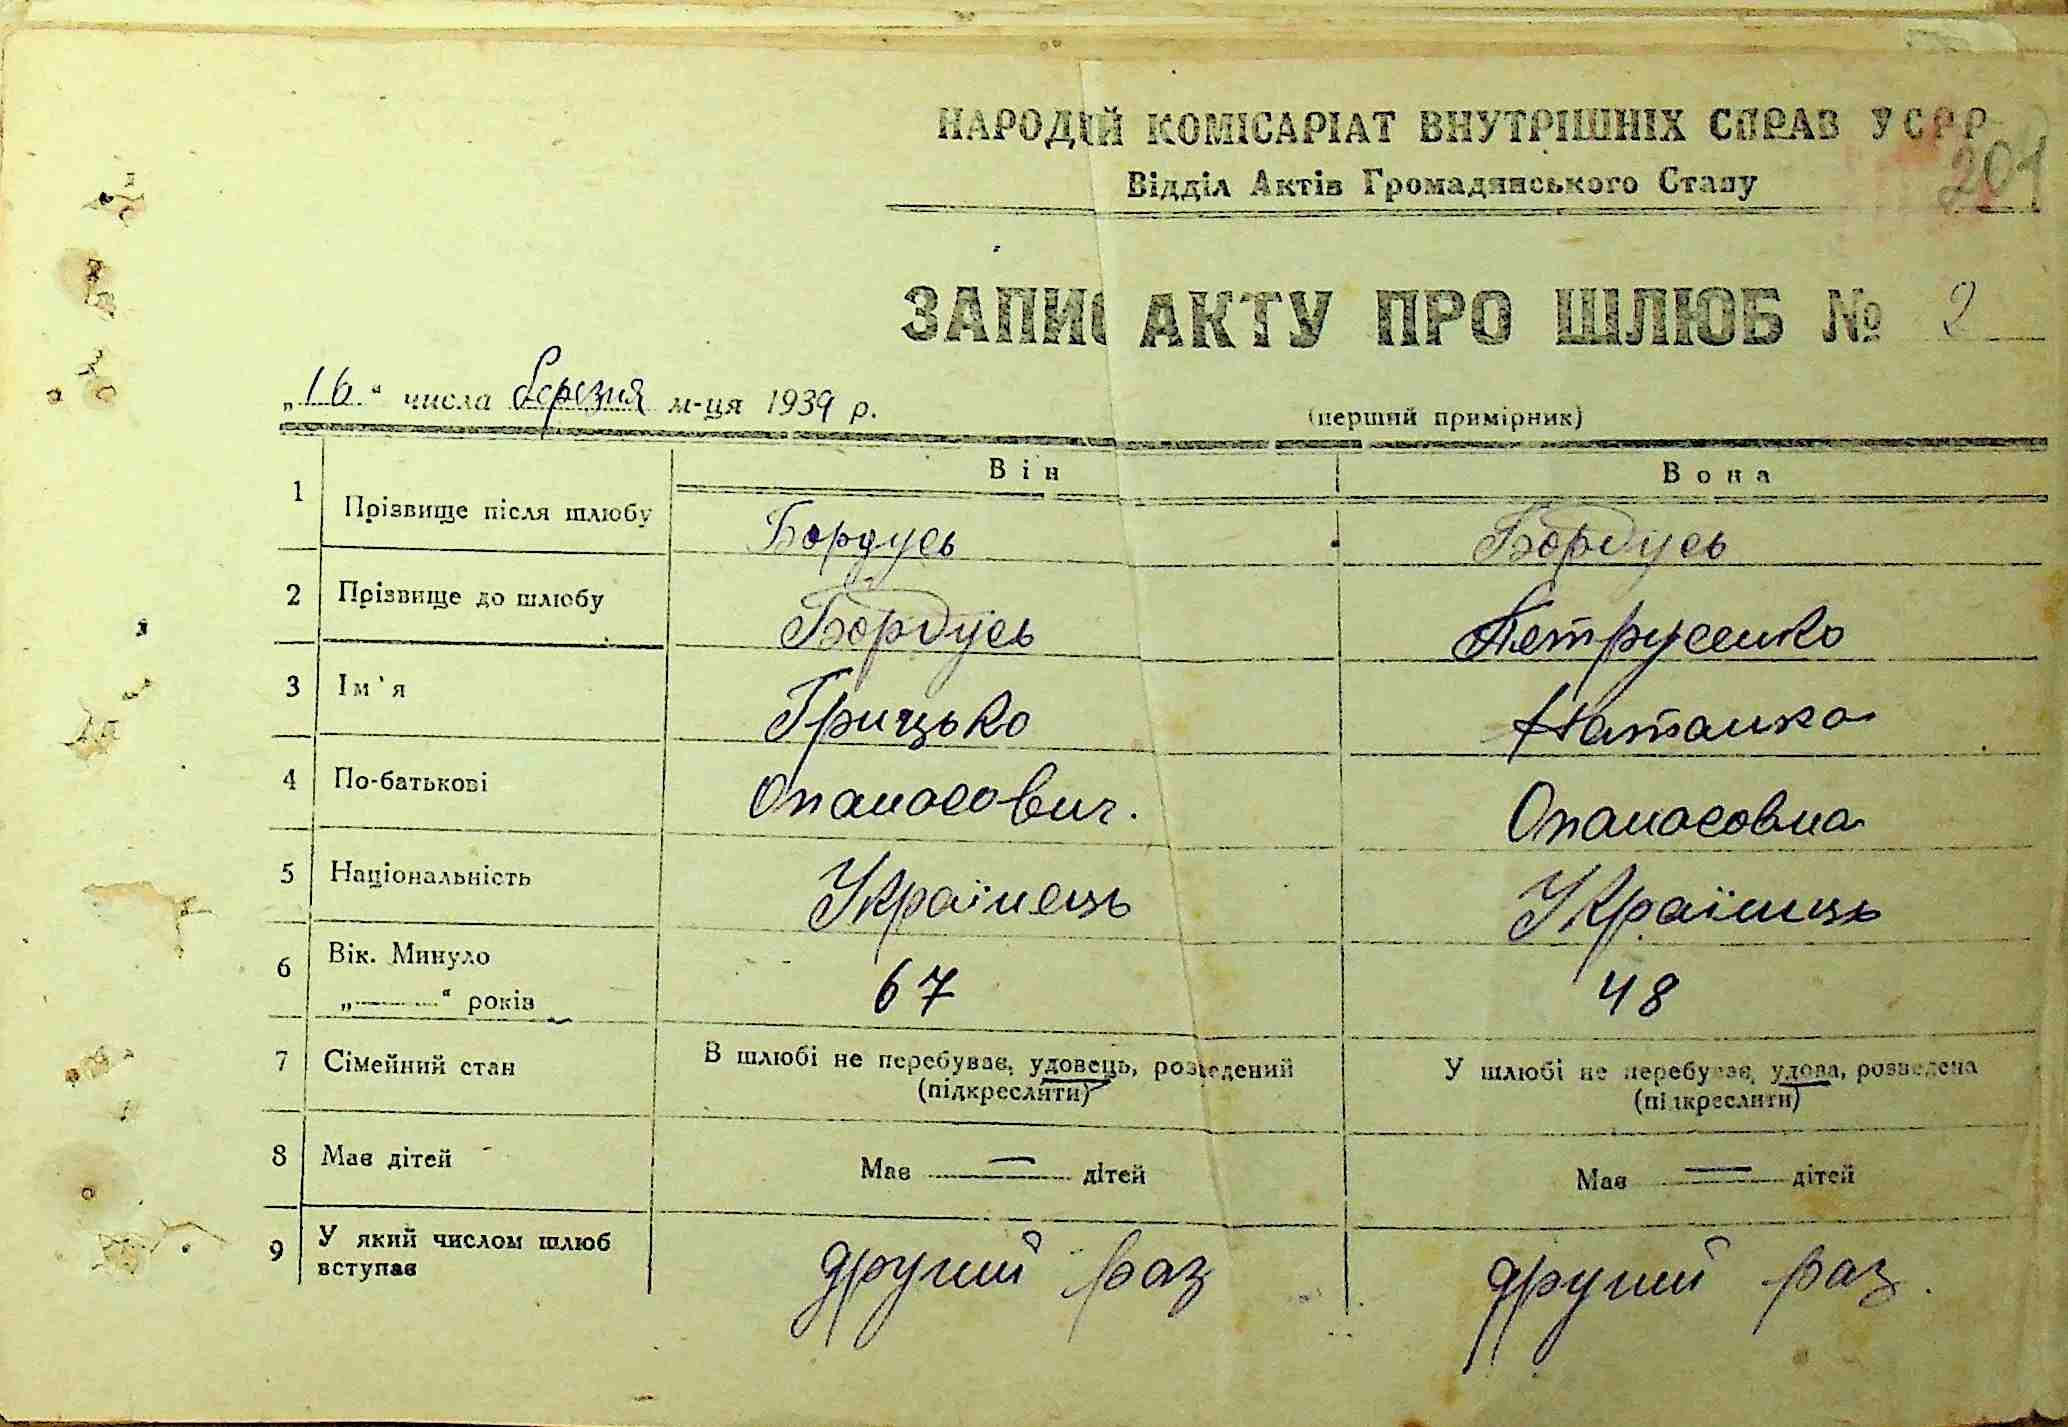 НАРОДНІЙ КОМІСАРІАТ ВНУТРІШНІХ СПРАВ УСРР
201
Відділ Актів Громадянського Стану
ЗАПИС АКТУ ПРО ШЛЮБ № 2
„16“ числа березня м-ця 1939 р.
(перший примірник)
Він Вона
1 Прізвище після шлюбу Бордусь Бордусь
2 Прізвище до шлюбу Бордусь Петрусенко
3 Ім'я Грицько Наталка
4 По-батькові Опанасович. Опанасовна
5 Національність Українець Українць
6 Вік. Минуло
„———“ років 67 48
7 Сімейний стан В шлюбі не перебуває, удовець, розведений У шлюбі не перебуває, удова, розведена
(підкреслити) (підкреслити)
8 Має дітей Має — дітей Має — дітей
9 У який числом шлюб
вступає другий раз другий раз.